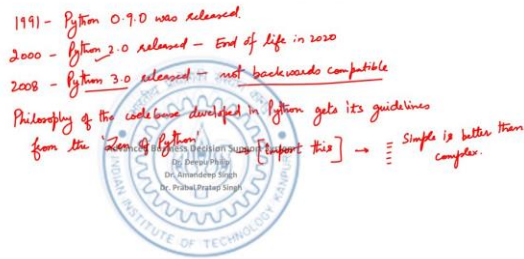 1991 - Python 0.9.0 was released.
2000 - Python 2.0 released - End of life in 2020
2008 - Python 3.0 released - not backwards compatible
Philosophy of the codebase developed in Python gets its guidelines
from the 'Zen of Python' → [import this] → Simple is better than
complex.
Advanced Business Decision Support
Dr. Deepu Philip
Dr. Amandeep Singh
Dr. Prabal Pratap Singh
INDIAN INSTITUTE OF TECHNOLOGY KANPUR